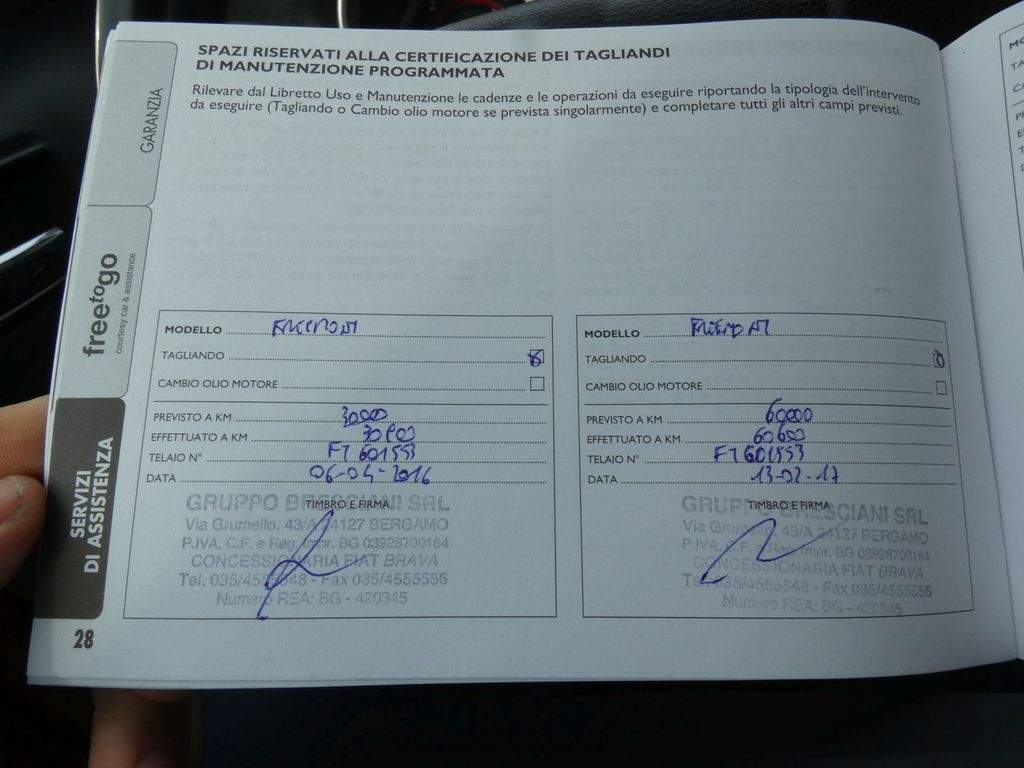 SPAZI RISERVATI ALLA CERTIFICAZIONE DEI TAGLIANDI
DI MANUTENZIONE PROGRAMMATA
Rilevare dal Libretto Uso e Manutenzione le cadenze e le operazioni da eseguire riportando la tipologia dell'intervento
da eseguire (Tagliando o Cambio olio motore se prevista singolarmente) e completare tutti gli altri campi previsti.
GARANZIA
freetogo
courtesy car & assistance
SERVIZI
DI ASSISTENZA
28
MODELLO
TAGLIANDO
CAMBIO OLIO MOTORE
PREVISTO A KM 30000
EFFETTUATO A KM
TELAIO N° F7601553
DATA 06-04-2016
TIMBRO E FIRMA
GRUPPO BRESCIANI SRL
Via Grumello, 43/A 24127 BERGAMO
P.IVA, C.F. e Reg. Impr. BG 03928700164
CONCESSIONARIA FIAT BRAVA
Tel. 035/4555548 - Fax 035/4555556
Numero REA: BG - 420345
MODELLO
TAGLIANDO
CAMBIO OLIO MOTORE
PREVISTO A KM 60000
EFFETTUATO A KM 60600
TELAIO N° F7601553
DATA 13-02-17
TIMBRO E FIRMA
GRUPPO BRESCIANI SRL
Via Grumello, 43/A 24127 BERGAMO
P.IVA, C.F. e Reg. Impr. BG 03928700164
CONCESSIONARIA FIAT BRAVA
Tel. 035/4555548 - Fax 035/4555556
Numero REA: BG - 420345